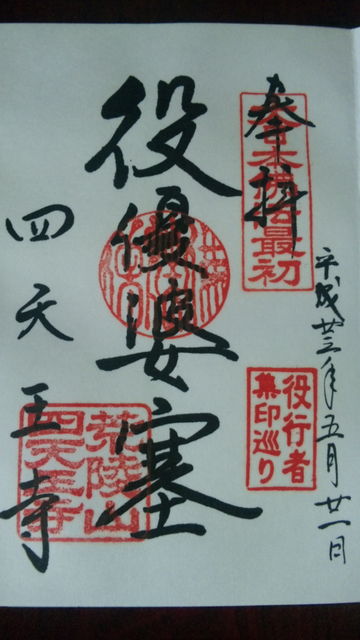 平成廿三年五月廿一日
奉拝
大日本佛法最初
役行者
集印巡り
役優婆塞
四天王寺
荒陵山
四天王寺